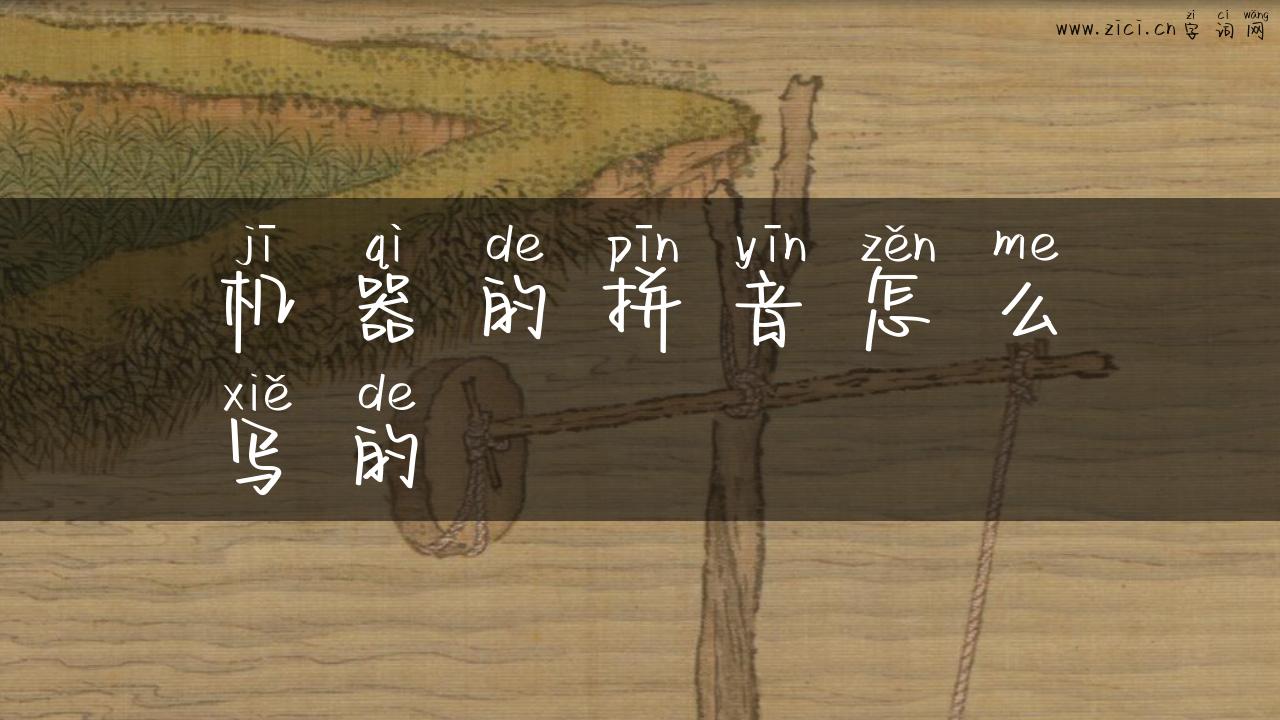 zì cí wǎng
www.zici.cn 字 词 网
jī qì de pīn yīn zěn me
机 器 的 拼 音 怎 么
xiě de
写 的